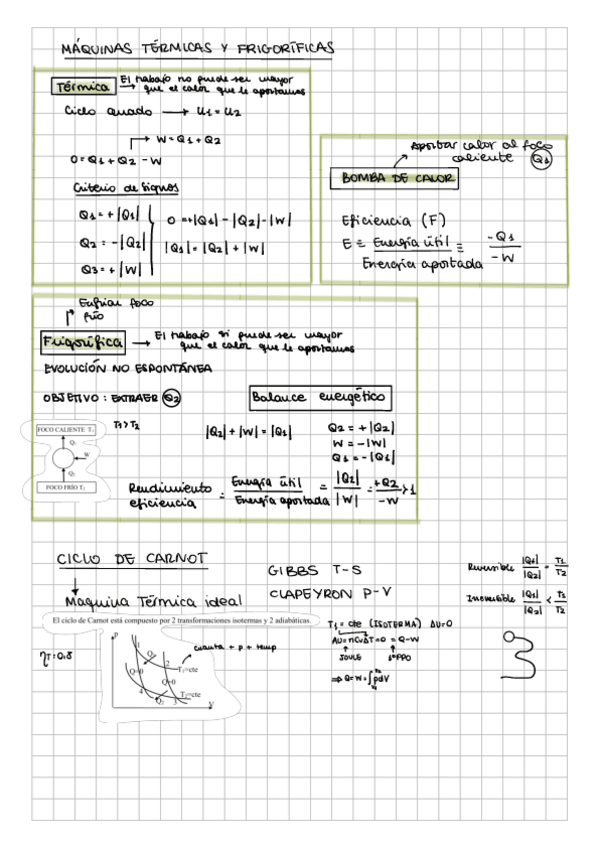 MÁQUINAS TÉRMICAS Y FRIGORÍFICAS
Térmica → El trabajo no puede ser mayor
que el calor que le aportamos
Ciclo cerrado → U1 = U2
W = Q1 + Q2
0 = Q1 + Q2 - W
Criterio de signos
Q1 = + |Q1|
Q2 = - |Q2|
Q3 = + |W|
0 = +|Q1| - |Q2| - |W|
|Q1| = |Q2| + |W|
Aportar calor al foco
caliente Q1
BOMBA DE CALOR
Eficiencia (F)
E = Energía útil / Energía aportada = -Q1 / -W
Enfriar foco
frío
Frigorífica → El trabajo si puede ser mayor
que el calor que le aportamos
EVOLUCIÓN NO ESPONTÁNEA
OBJETIVO : EXTRAER Q2
Balance energético
FOCO CALIENTE T1
Q1
W
Q2
FOCO FRÍO T2
T1 > T2
|Q2| + |W| = |Q1|
Q2 = + |Q2|
W = - |W|
Q1 = - |Q1|
Rendimiento
eficiencia
= Energía útil / Energía aportada = |Q2| / |W| = +Q2 / -W > 1
CICLO DE CARNOT
Maquina Térmica ideal
GIBBS T-S
CLAPEYRON P-V
Reversible |Q1| / |Q2| = T1 / T2
Irreversible |Q1| / |Q2| < T1 / T2
El ciclo de Carnot está compuesto por 2 transformaciones isotermas y 2 adiabáticas.
P
1
Q1
2
T1=cte
Q=0
Q=0
4
T2=cte
Q2
3
V
+ p + temp
T1 = cte (ISOTERMA) ΔU=0
ΔU=nCvΔT=0 = Q-W
JOULE
1º PPO
⇒ Q=W=∫pdV